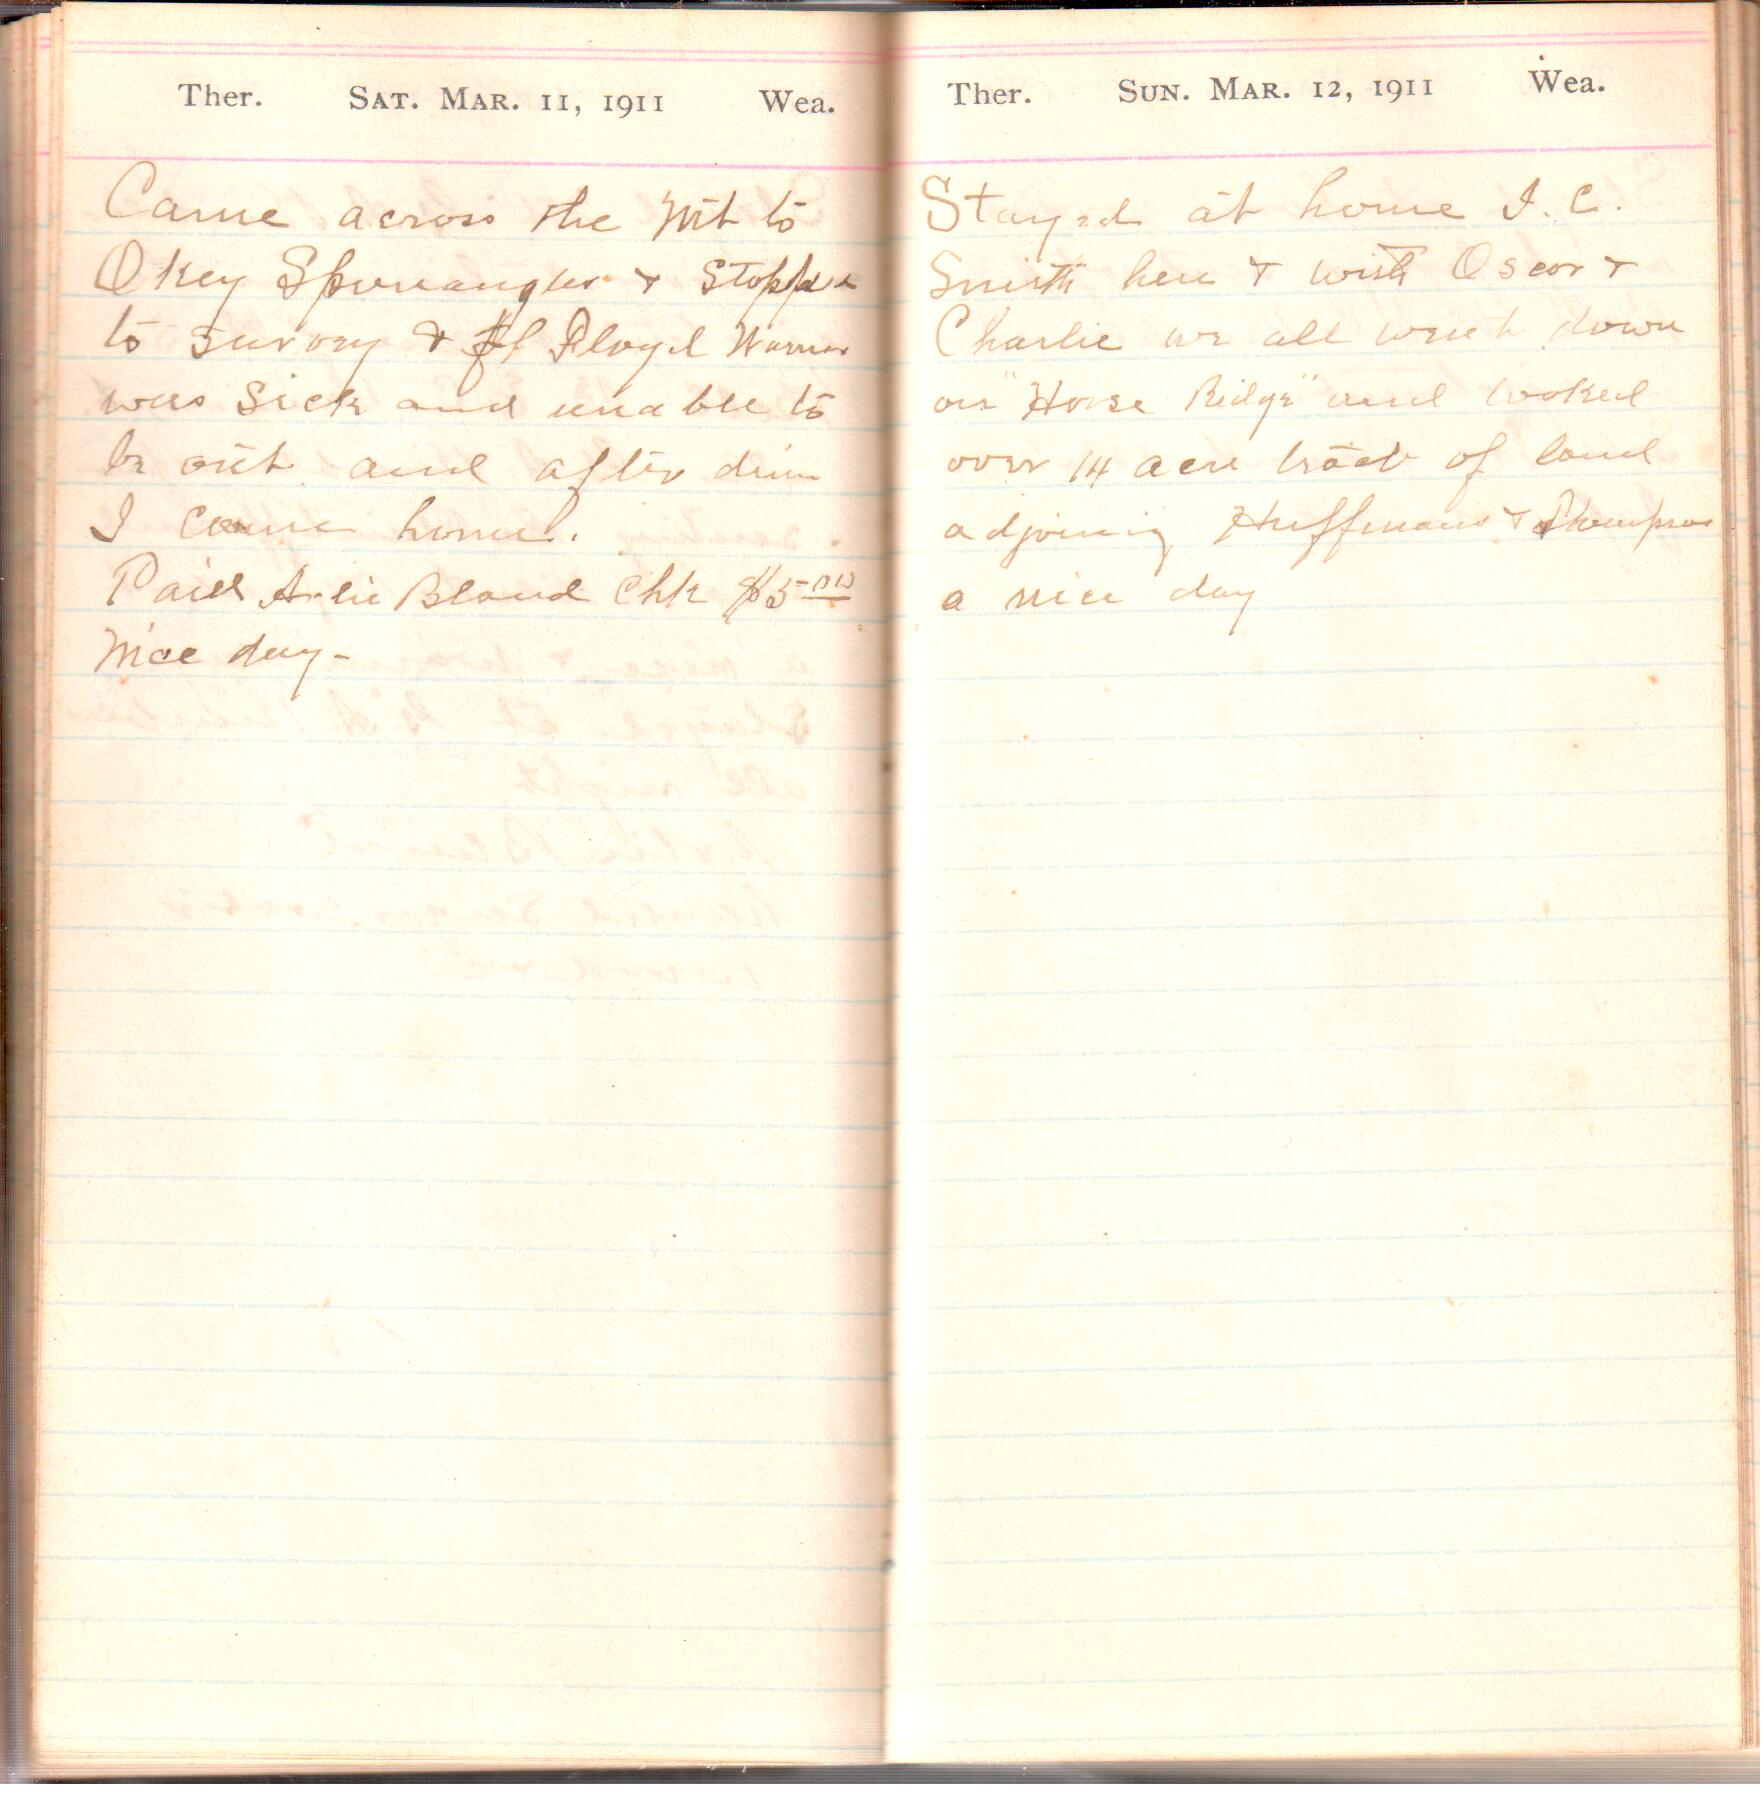 Ther. SAT. MAR. 11, 1911 Wea.
Came across the Mt to
Okey & Stopped
to survey & Floyd Warner
was sick and unable to
be out and after dinn
I came home.
Paid Arlie Bland Chk $5.00
Nice day-
Ther. SUN. MAR. 12, 1911 Wea.
Stayed at home I. C.
Smith here & with Oscar &
Charlie we all went down
on "Horse Ridge" and looked
over 14 acre track of land
adjoining Huffmans & Thompson
a nice day